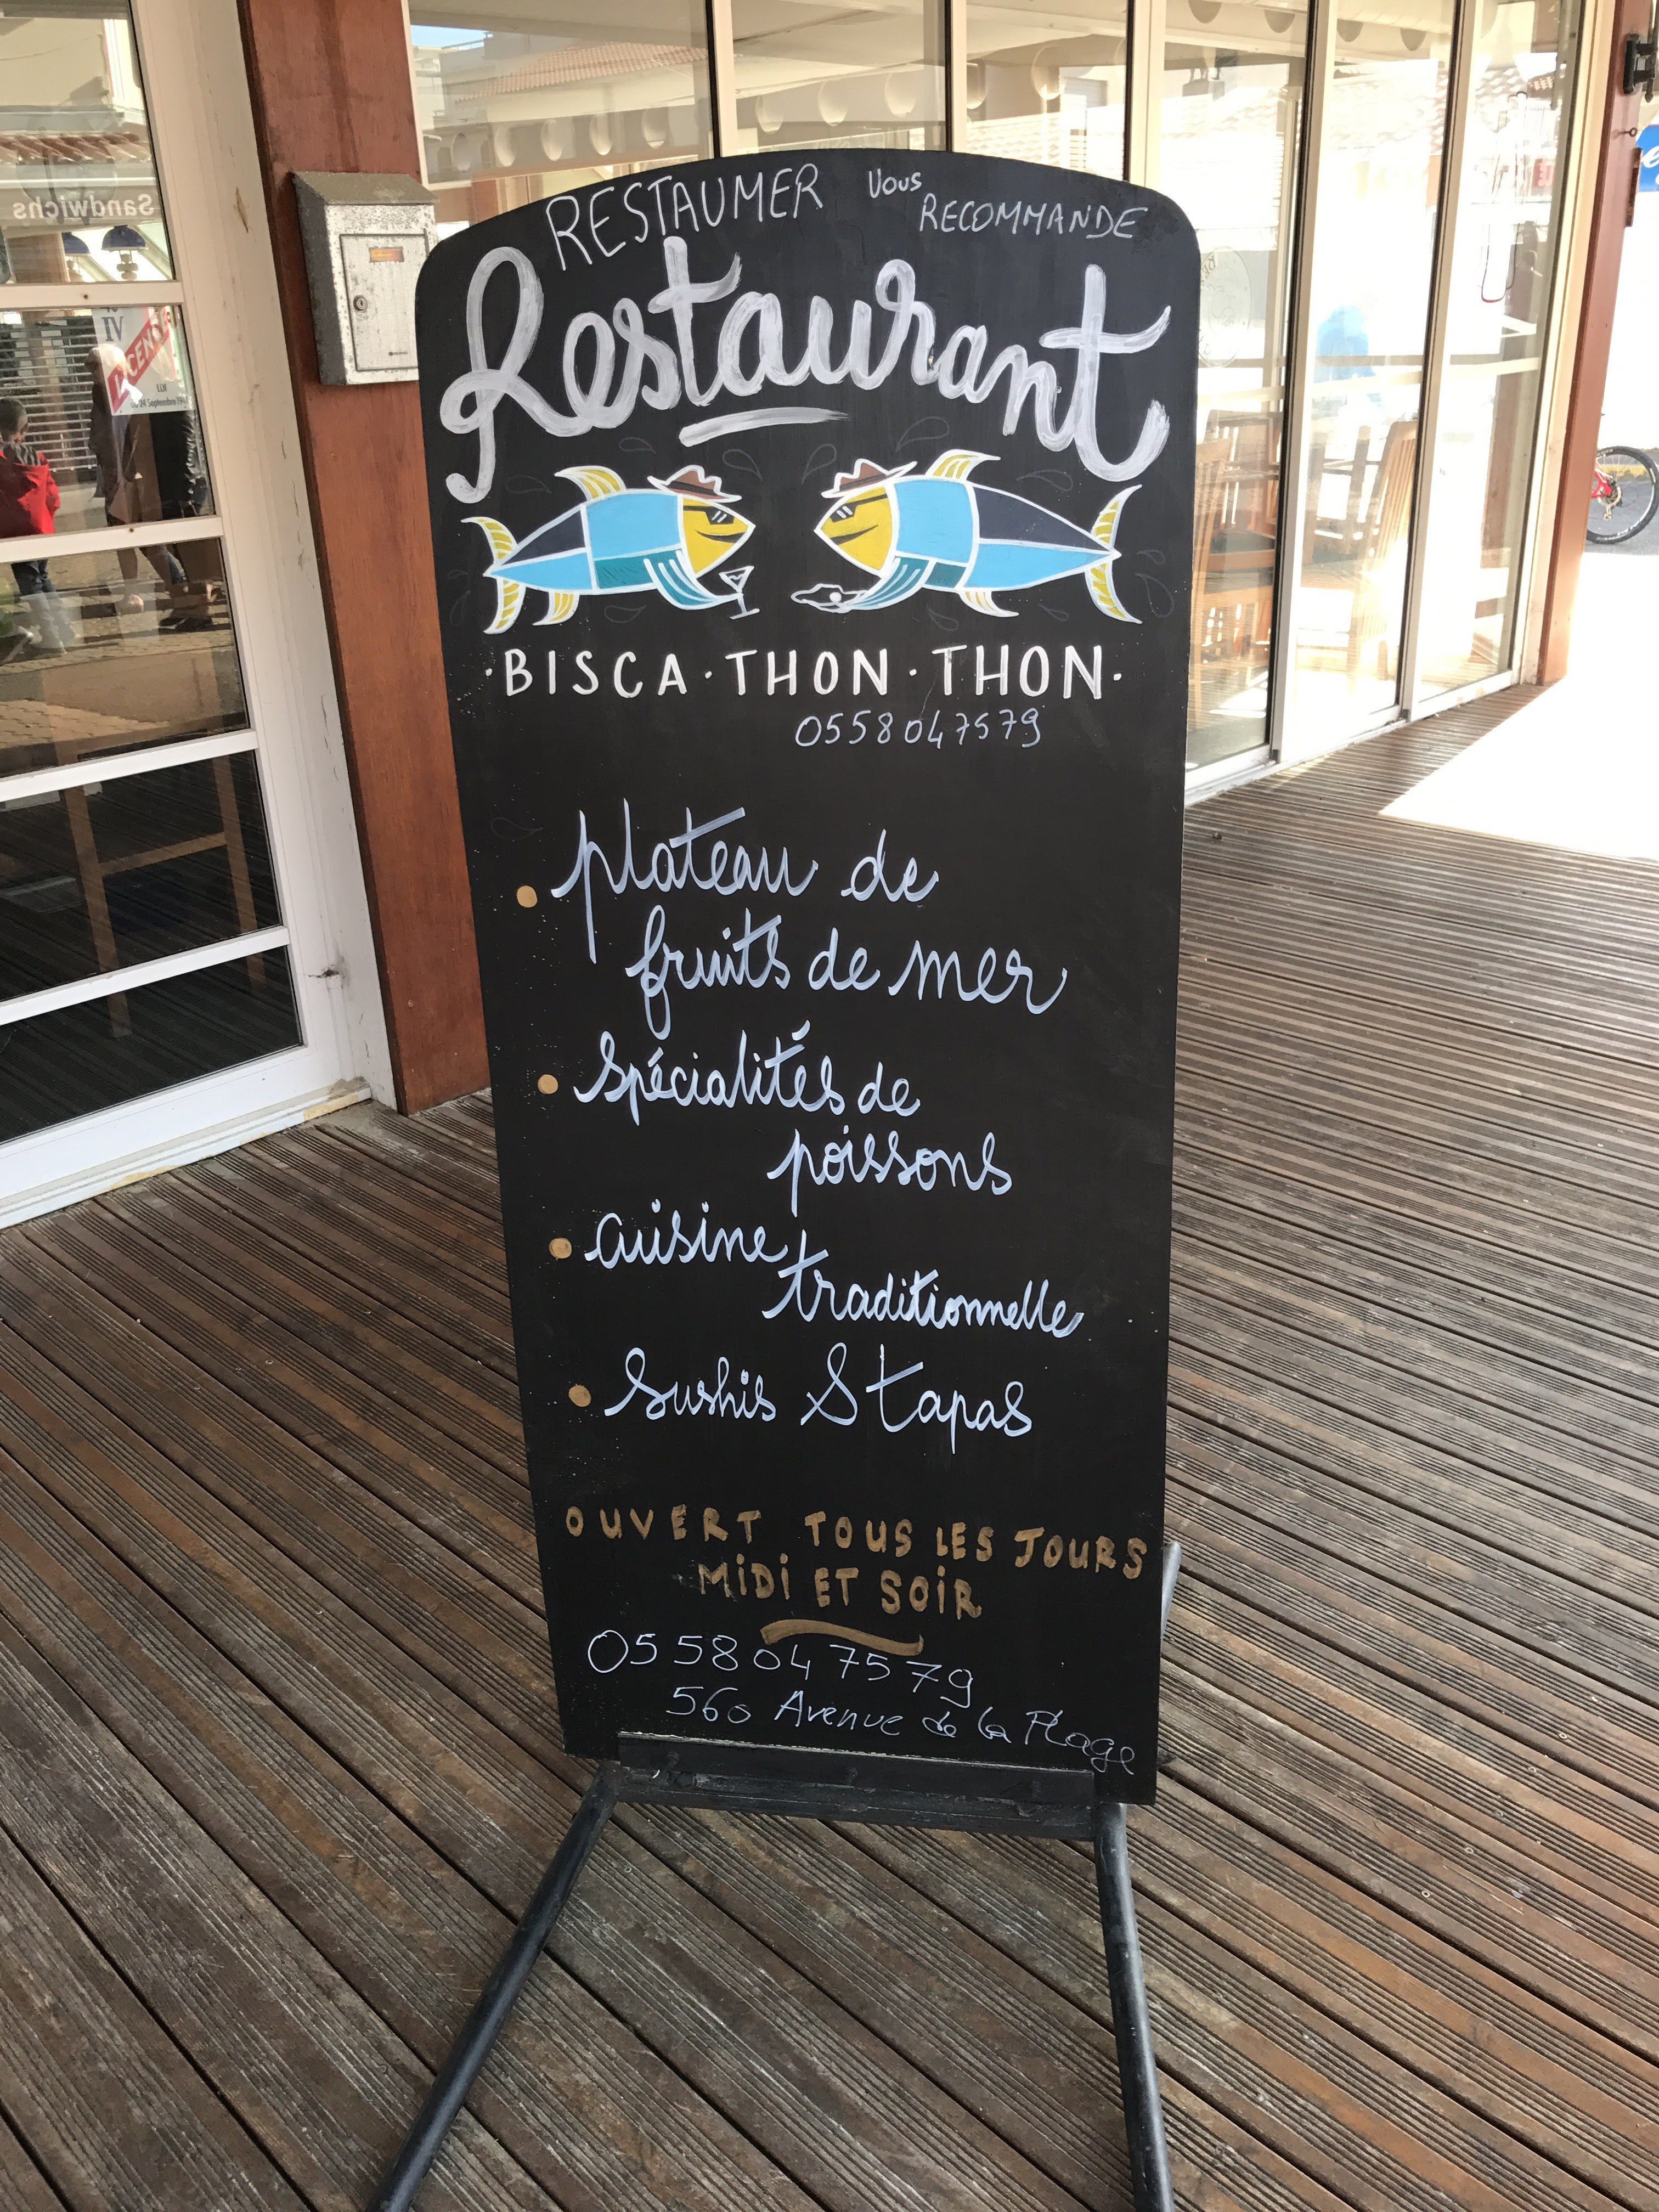 RESTAUMER Vous RECOMMANDE
Restaurant
·BISCA·THON·THON·
0558047579
plateau de
fruits de mer
spécialités de
poissons
cuisine
traditionnelle
sushis & tapas
OUVERT TOUS LES JOURS
MiDi ET SOiR
05 58 04 75 79
560 Avenue de la Plage
Sandwichs
IV
LICENCE